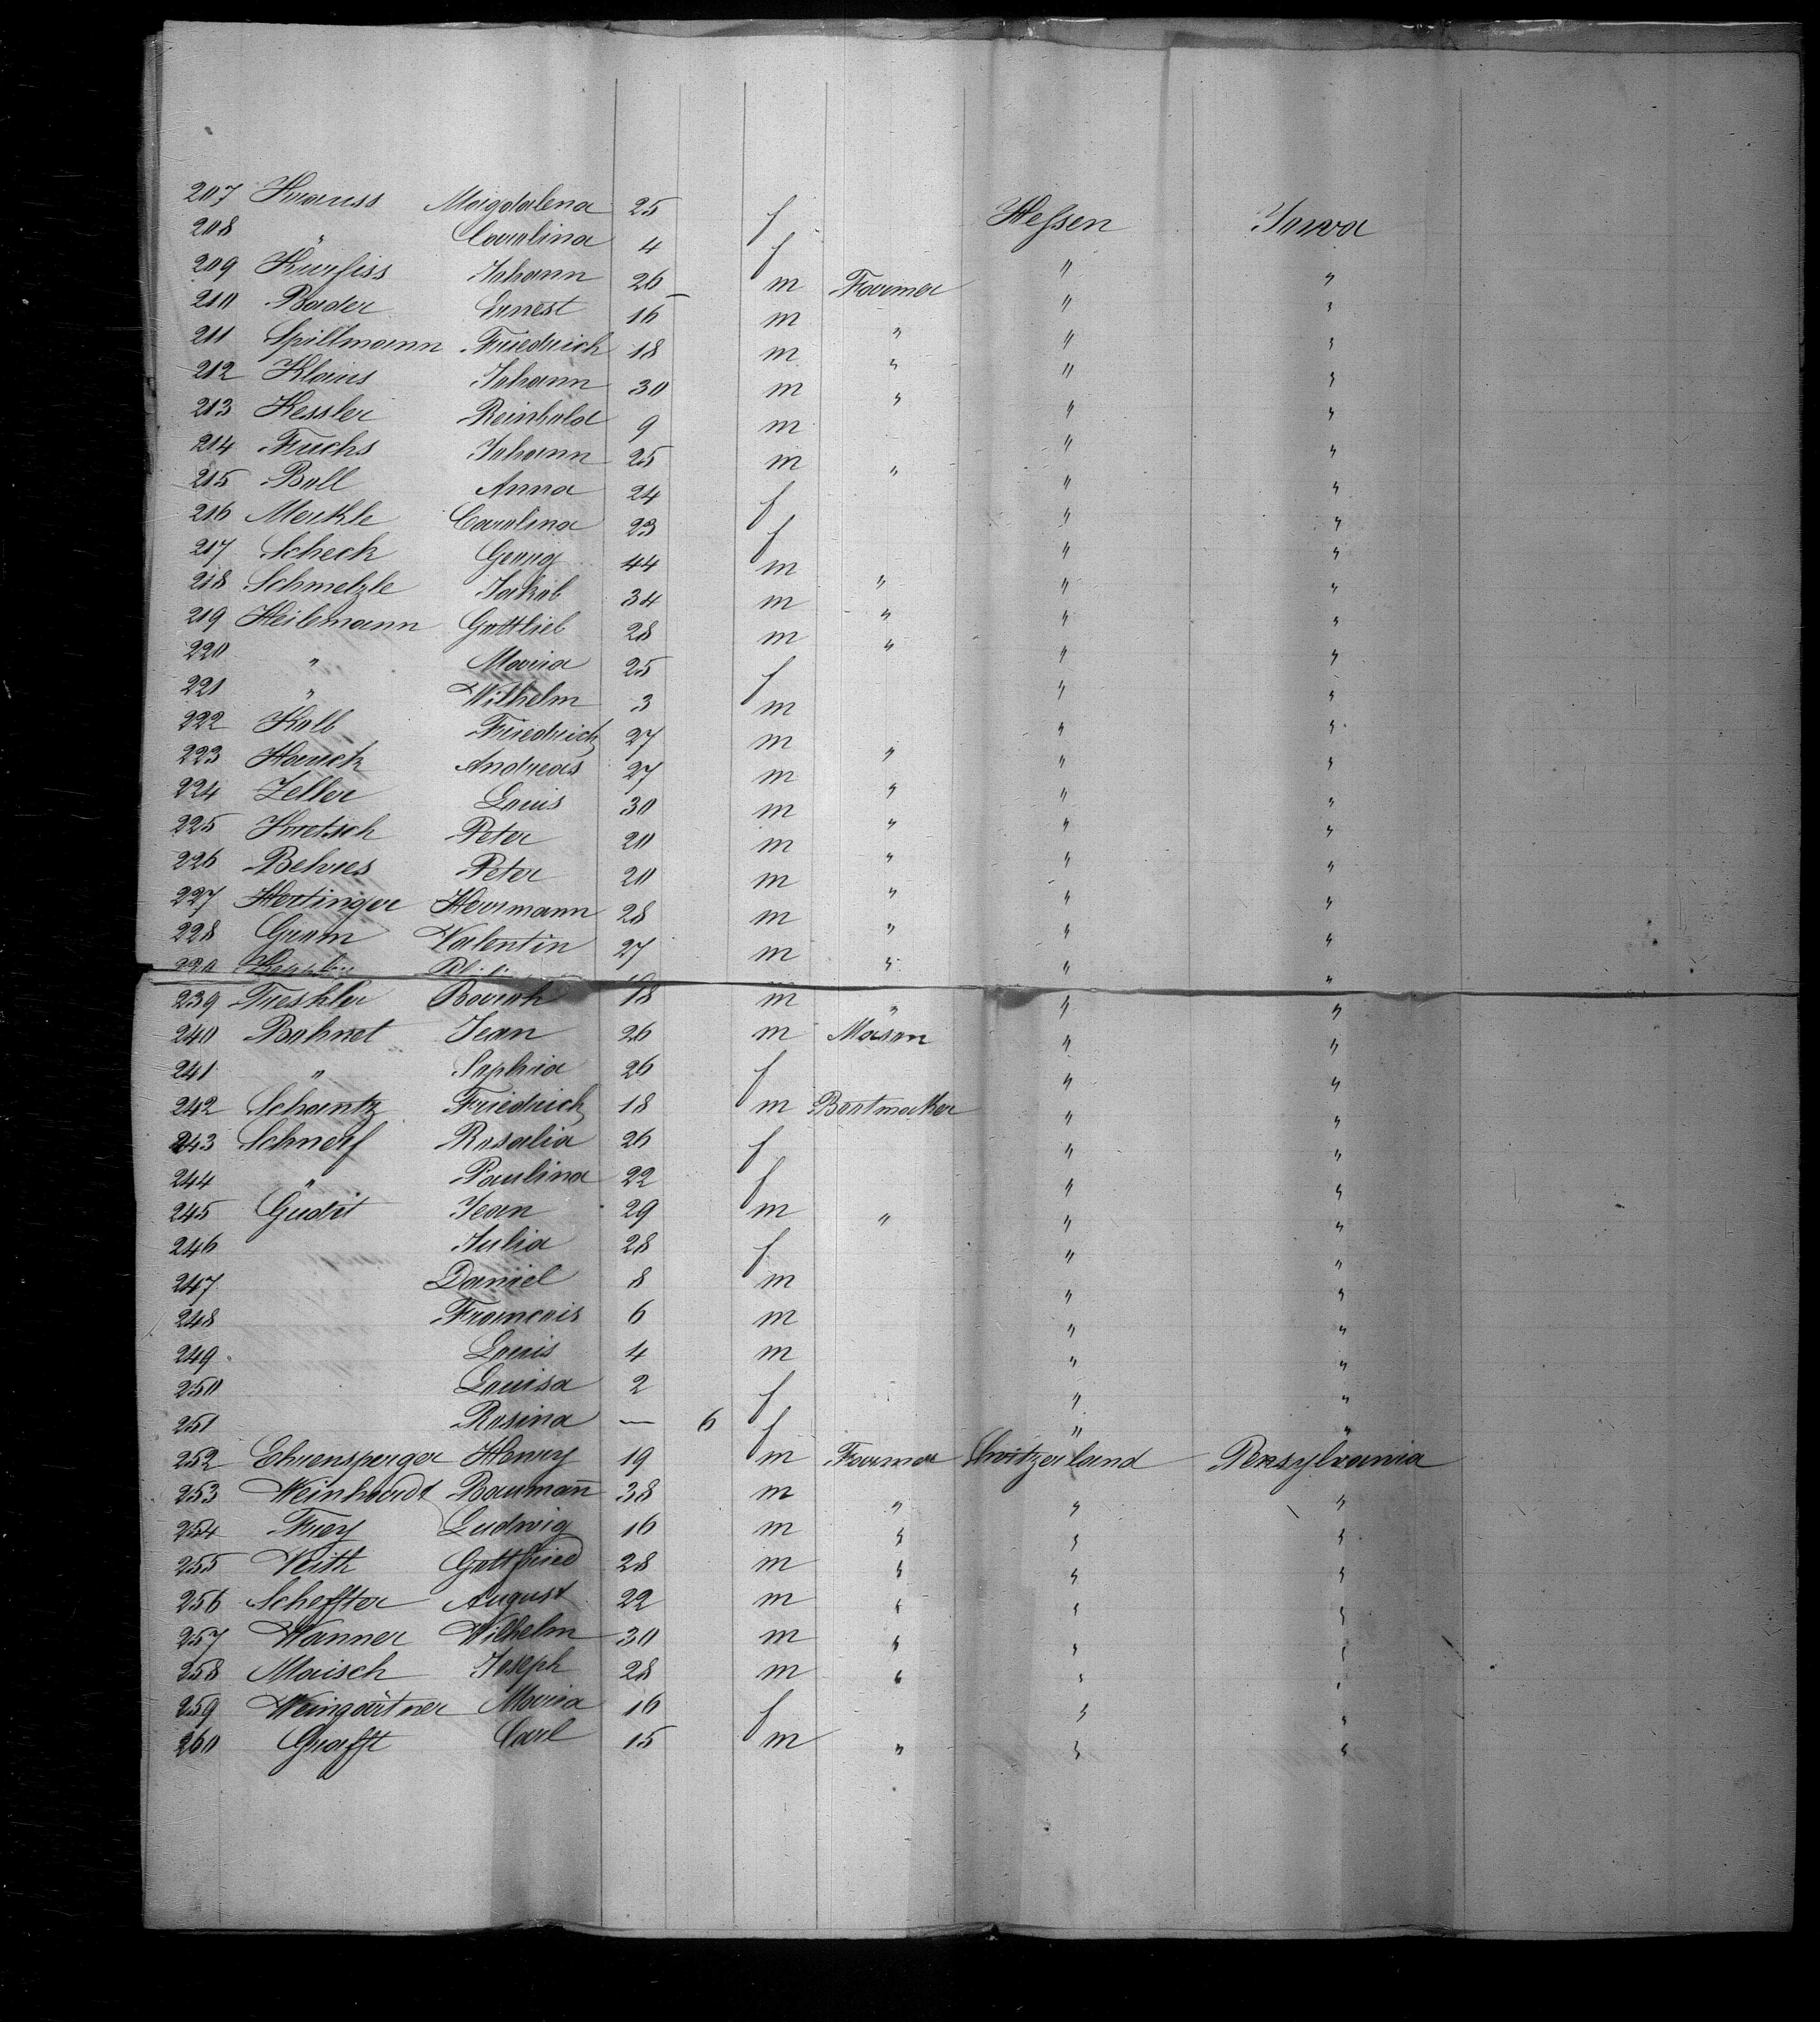 207 Krauss Magdalena 25 f Hessen Iowa
208 " Carolina 4 f " "
209 Kurfiss Johann 26 m Farmer " "
210 Bader Ernest 16 m " " "
211 Spillmann Friedrich 18 m " " "
212 Klaus Johann 30 m " " "
213 Kessler Reinhold 9 m " "
214 Fuchs Johann 25 m " " "
215 Boll Anna 24 f " "
216 Merkle Carolina 23 f " "
217 Scheck Georg 44 m " " "
218 Schmelzle Jakob 34 m " " "
219 Heilemann Gottlieb 28 m " " "
220 " Maria 25 f " "
221 " Wilhelm 3 m " "
222 Kolb Friedrich 27 m " " "
223 Hauck Andreas 27 m " " "
224 Zeller Louis 30 m " " "
225 Kretsch Peter 20 m " " "
226 Behres Peter 20 m " " "
227 Hertinger Herrmann 28 m " " "
228 Grom Valentin 27 m " " "
239 Treshler 18 m " " "
240 Bohnet Jean 26 m Mason " "
241 " Sophia 26 f " "
242 Schantz Friedrich 18 m Bootmaker " "
243 Schnerf Rosalia 26 f " "
244 " Paulina 22 f " "
245 Güdit Jean 29 m " " "
246 Julia 28 f " "
247 Daniel 8 m " "
248 Francois 6 m " "
249 Louis 4 m " "
250 Louisa 2 f " "
251 Rosina — 6 f " "
252 Ehrensperger Henry 19 m Farmer Switzerland Pensylvania
253 Weinhardt Baumann 38 m " " "
254 Frey Ludwig 16 m " " "
255 Veith Gottfried 28 m " " "
256 Scheffter August 22 m " " "
257 Wanner Wilhelm 30 m " " "
258 Maisch Joseph 28 m " " "
259 Weingärtner Maria 16 f " "
260 Grafft Carl 15 m " " "